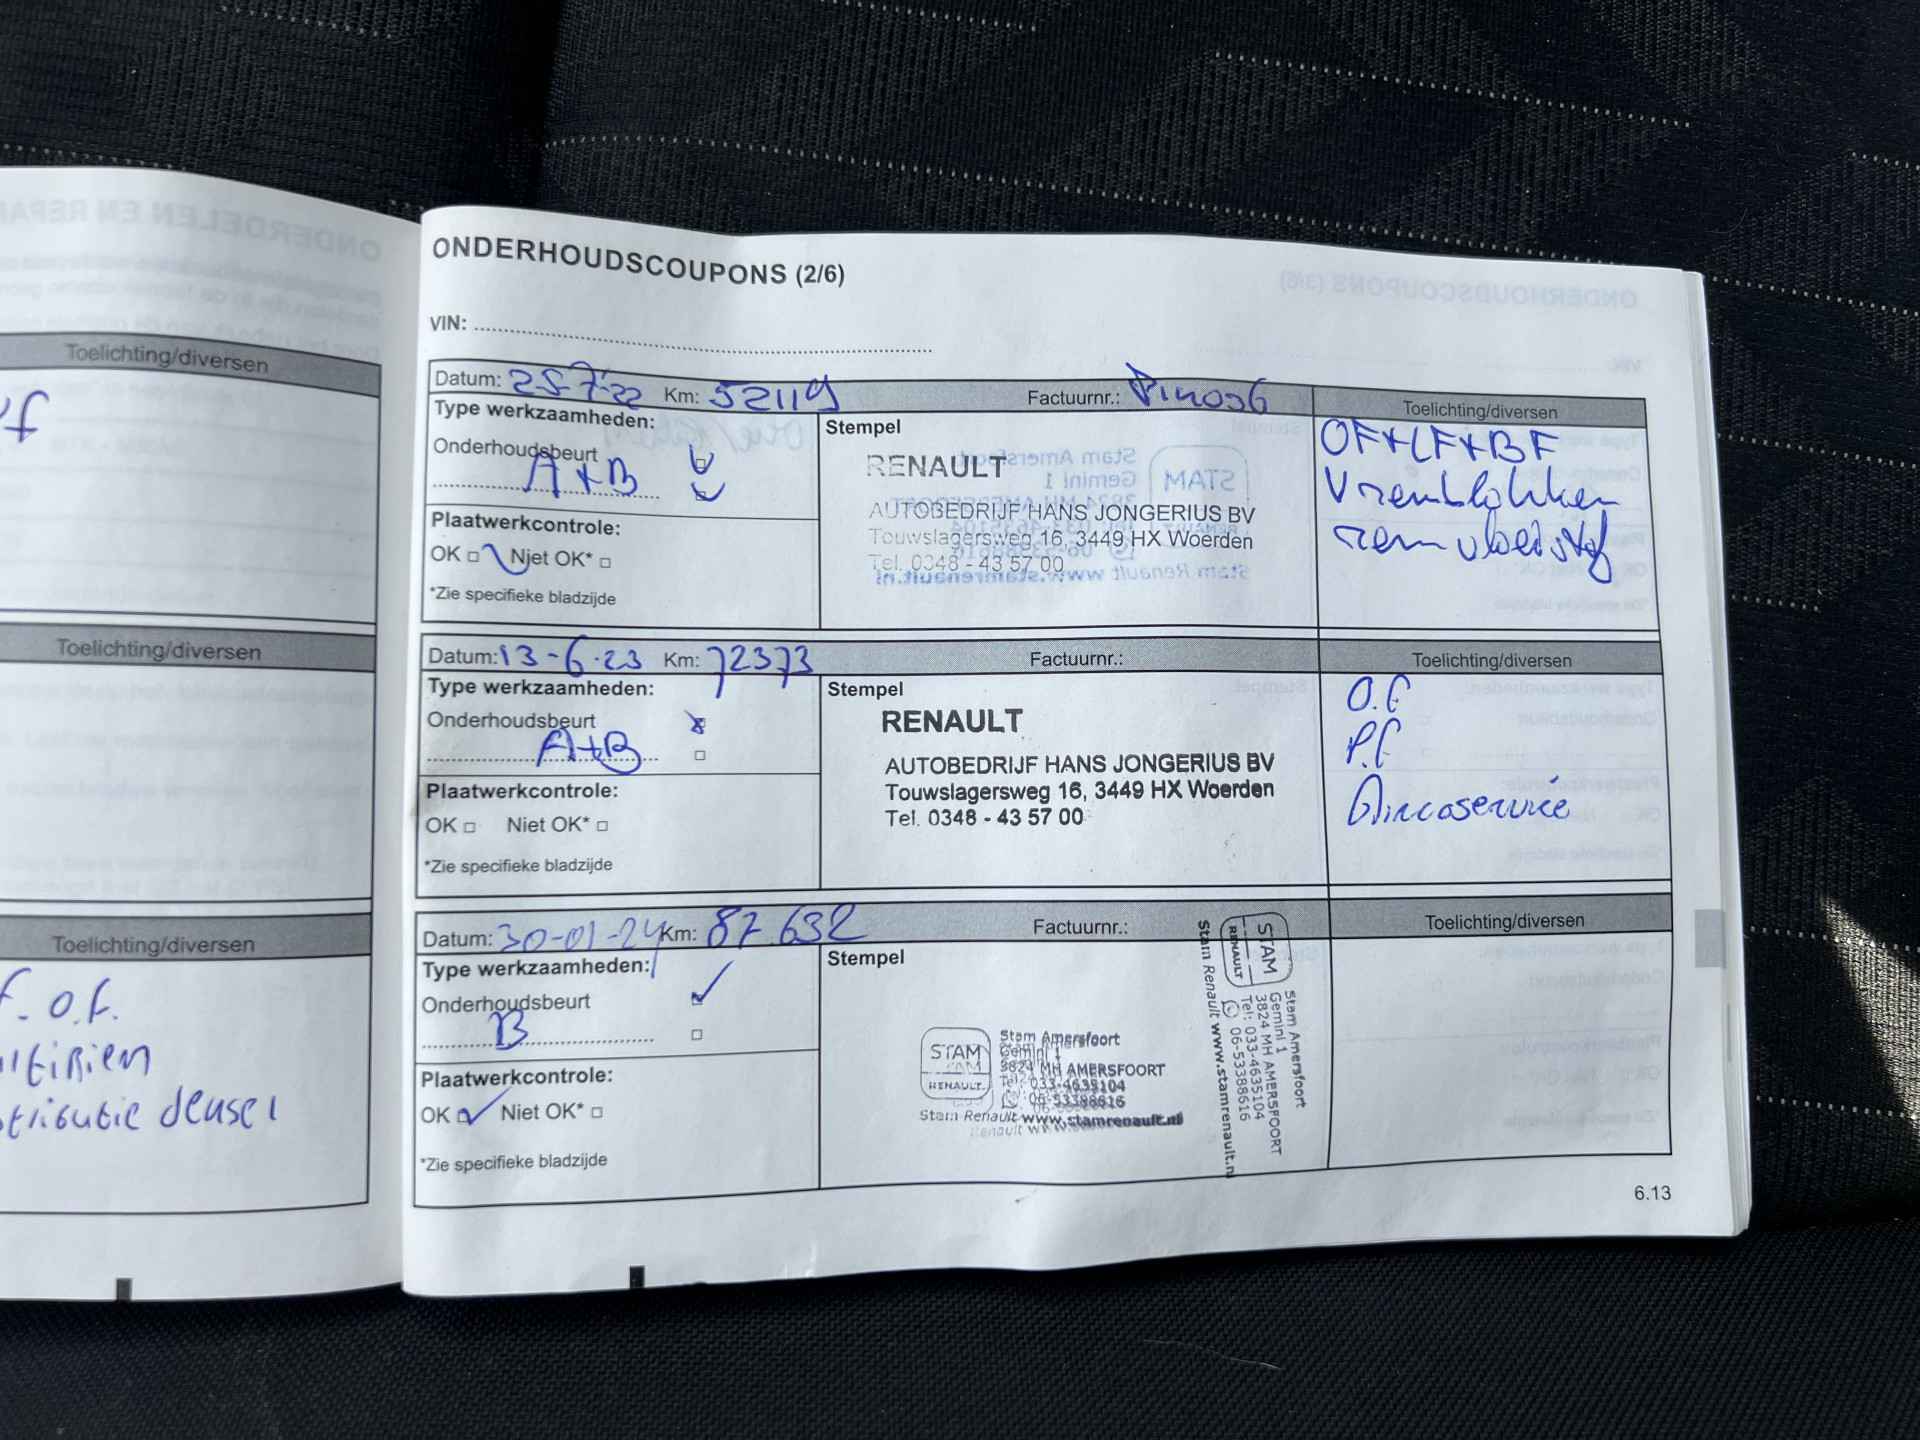 Toelichting/diversen
Toelichting/diversen
Toelichting/diversen
f. o.f.
ONDERHOUDSCOUPONS (2/6)
VIN:
Datum: 25-7-22 Km: 52119 Factuurnr.: Toelichting/diversen
Type werkzaamheden:
Onderhoudsbeurt
A+B
Plaatwerkcontrole:
OK □ Niet OK* □
*Zie specifieke bladzijde
Stempel
RENAULT
AUTOBEDRIJF HANS JONGERIUS BV
Touwslagersweg 16, 3449 HX Woerden
Tel. 0348 - 43 57 00
OF+LF+BF
V remblokken
remvloeistof
Datum: 13-6-23 Km: 72373 Factuurnr.: Toelichting/diversen
Type werkzaamheden:
Onderhoudsbeurt
A+B
Plaatwerkcontrole:
OK □ Niet OK* □
*Zie specifieke bladzijde
Stempel
RENAULT
AUTOBEDRIJF HANS JONGERIUS BV
Touwslagersweg 16, 3449 HX Woerden
Tel. 0348 - 43 57 00
O.F
P.F
Aircoservice
Datum: 30-01-24 Km: 87.632 Factuurnr.: Toelichting/diversen
Type werkzaamheden:
Onderhoudsbeurt
B
Plaatwerkcontrole:
OK □ Niet OK* □
*Zie specifieke bladzijde
Stempel
STAM
RENAULT
Stam Amersfoort
Gemini 1
3824 MH AMERSFOORT
Tel: 033-4635104
06-53388616
Stam Renault www.stamrenault.nl
STAM
RENAULT
Stam Amersfoort
Gemini 1
3824 MH AMERSFOORT
Tel: 033-4635104
06-53388616
Stam Renault www.stamrenault.nl
6.13